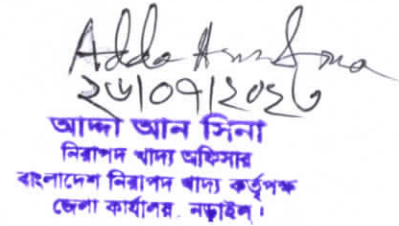 Adda An Sina
২৬/০৭/২০২৩
আদ্দা আন সিনা
নিরাপদ খাদ্য অফিসার
বাংলাদেশ নিরাপদ খাদ্য কর্তৃপক্ষ
জেলা কার্যালয়, নড়াইল।